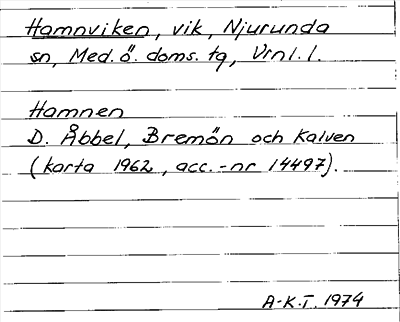 Hamnviken, vik, Njurunda
sn, Med. ö. doms. tg, Vrnl. l.
Hamnen
D. Åbbel, Bremön och Kalven
(karta 1962, acc.-nr 14497).
A-K.T. 1974